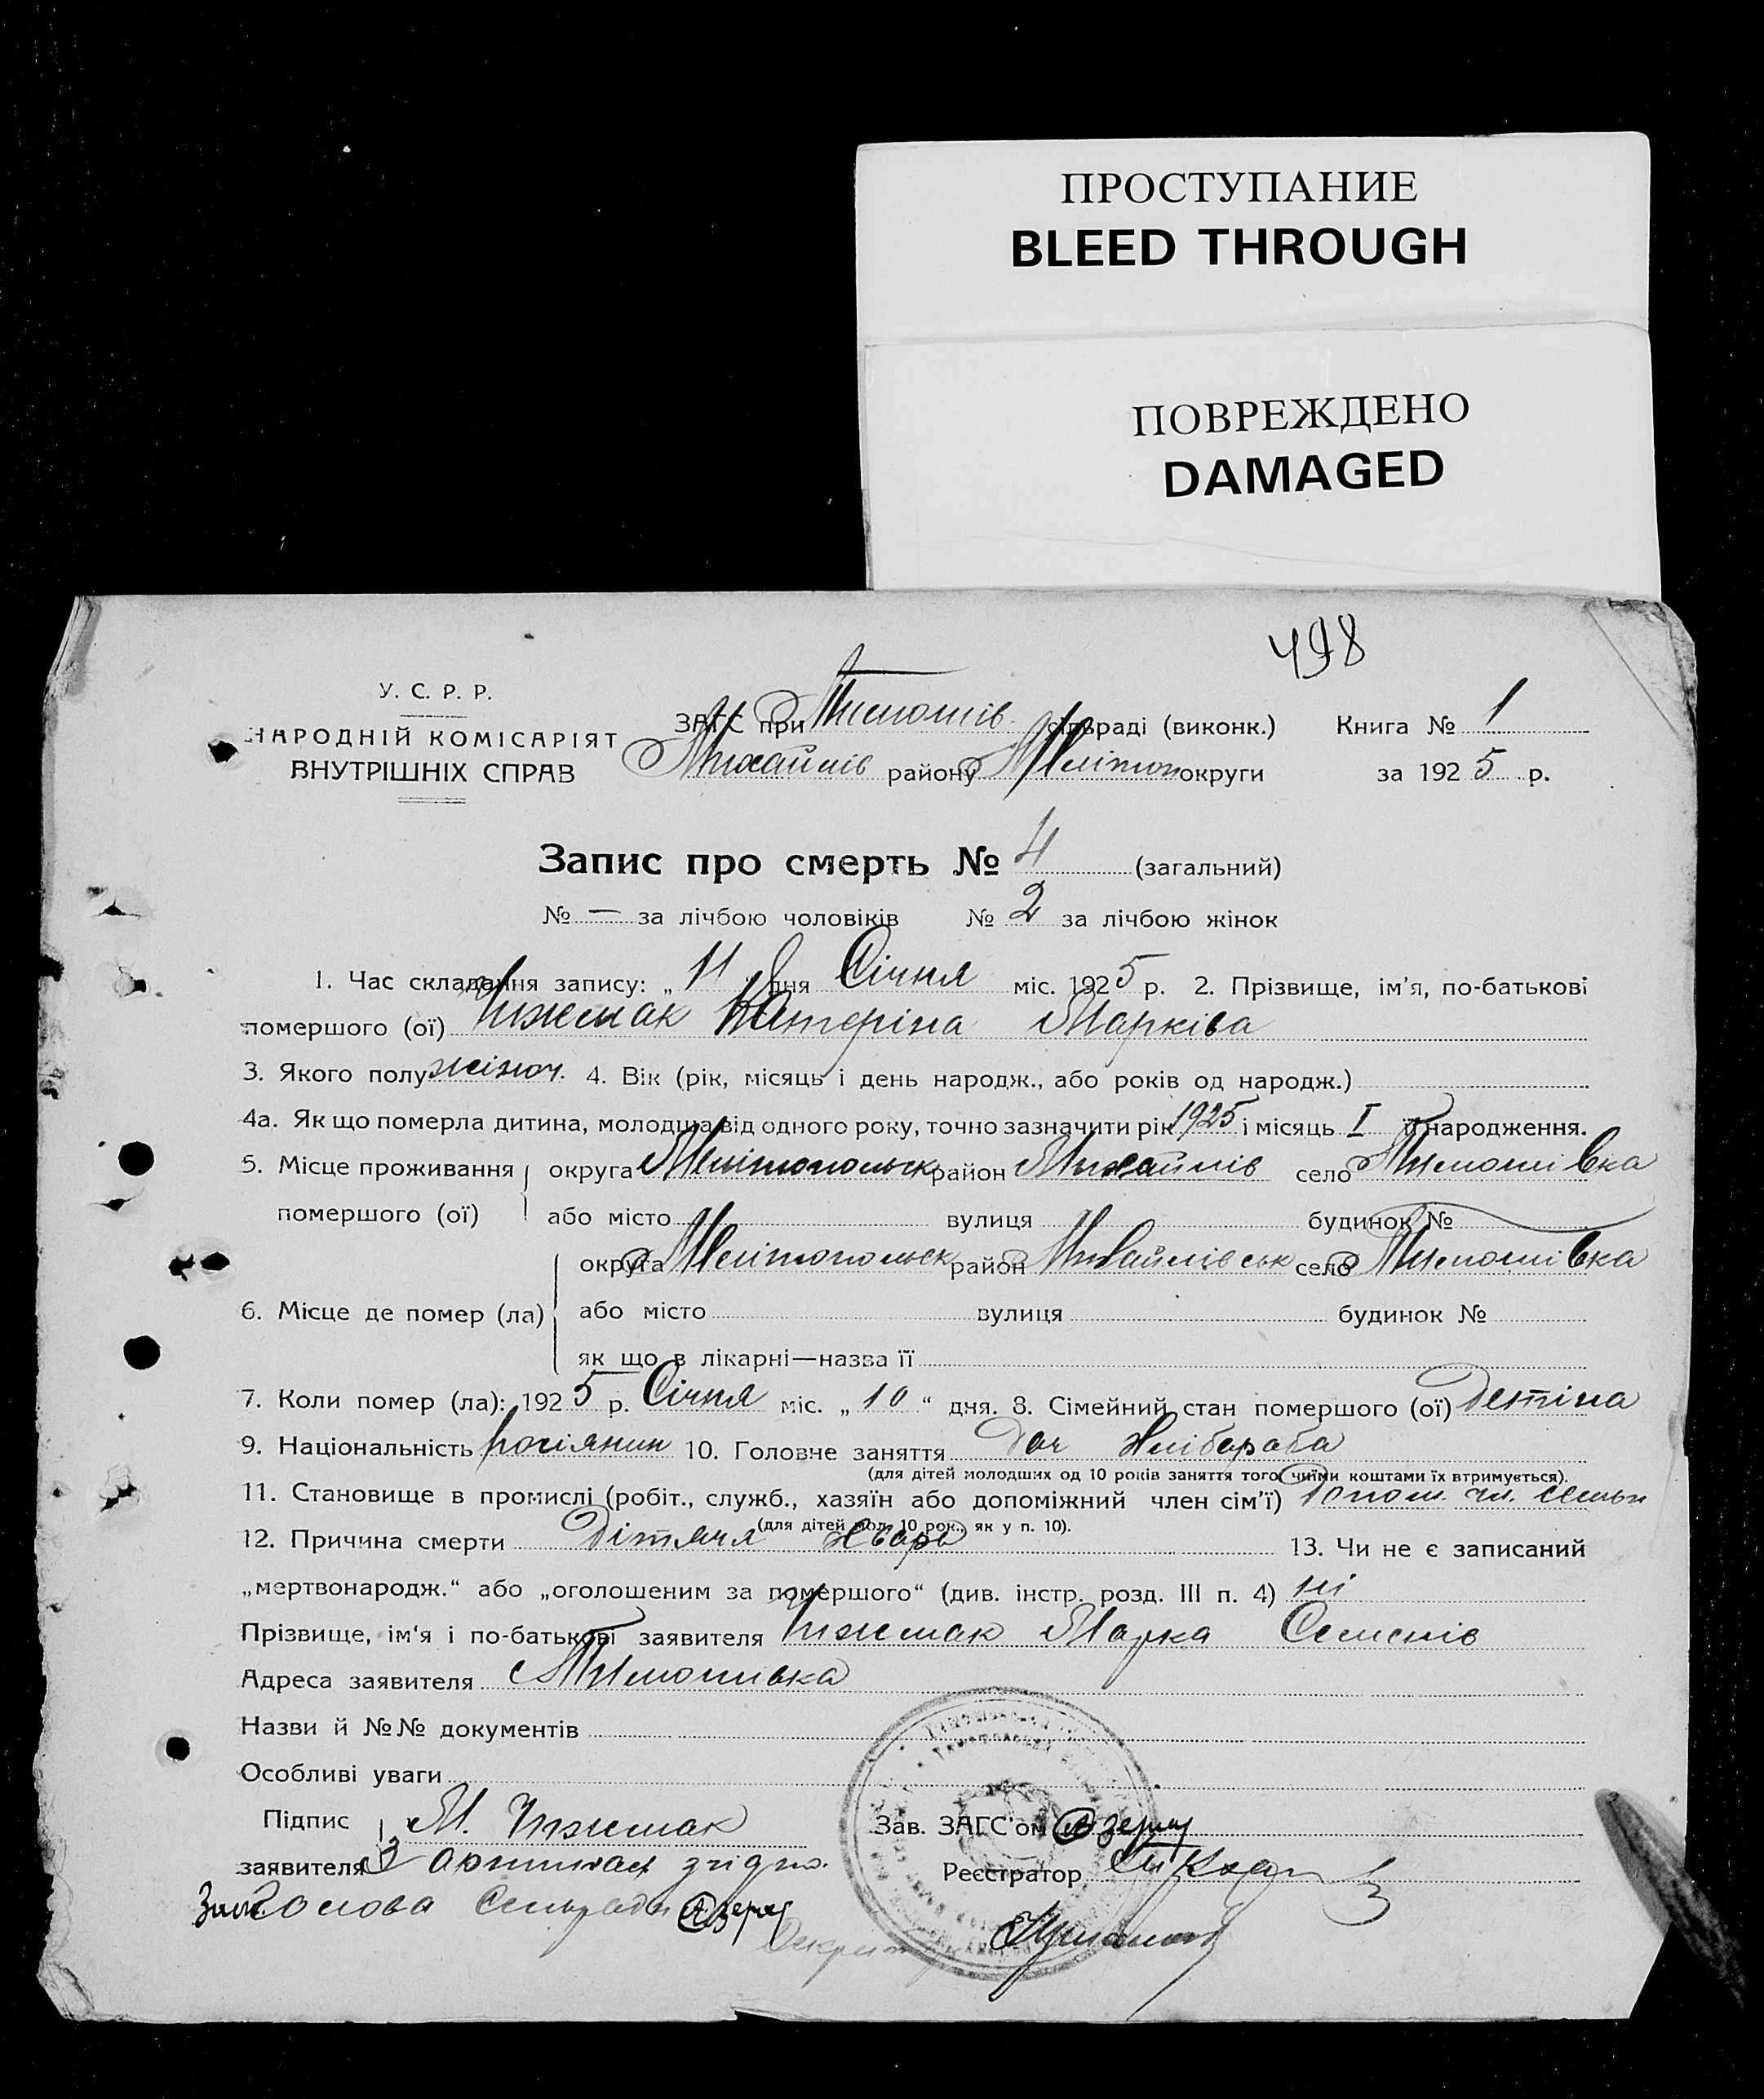 ПРОСТУПАНИЕ
BLEED THROUGH
ПОВРЕЖДЕНО
DAMAGED
498
У. С. Р. Р.
НАРОДНІЙ КОМІСАРІЯТ
ВНУТРІШНІХ СПРАВ
ЗАГС при Тимошів. сільраді (виконк.) Книга № 1
Михайлів району Мелітоп округи за 1925 р.
Запис про смерть № 4 (загальний)
№ — за лічбою чоловіків № 2 за лічбою жінок
1. Час складання запису: „11 дня Січня міс. 1925 р. 2. Прізвище, ім'я, по-батькові
помершого (ої) Чижмак Катеріна Марківа
3. Якого полу жіноч. 4. Вік (рік, місяць і день народж., або років од народж.)
4а. Як що померла дитина, молодша від одного року, точно зазначити рік 1925 і місяць I її народження.
5. Місце проживання округа Мелітопольск район Михайлів село Тимошівка
помершого (ої) або місто вулиця будинок №
округа Мелітопольск район Михайлівськ село Тимошівка
6. Місце де помер (ла) або місто вулиця будинок №
як що в лікарні—назва її
7. Коли помер (ла): 1925 р. Січня міс. „10“ дня. 8. Сімейний стан помершого (ої) Детіна
9. Національність росіянин 10. Головне заняття Доч Хлібороба
(для дітей молодших од 10 років заняття того чиїми коштами їх втримується).
11. Становище в промислі (робіт., служб., хазяїн або допоміжний член сім'ї) Допом. чл. семьи
(для дітей мол. 10 рок., як у п. 10).
12. Причина смерти Дітяча хвороб 13. Чи не є записаний
„мертвонародж.“ або „оголошеним за помершого“ (див. інстр. розд. III п. 4) ні
Прізвище, ім'я і по-батькові заявителя Чижмак Марка Семенів
Адреса заявителя Тимошивка
Назви й №№ документів
Особливі уваги
Підпис М. Чижмак Зав. ЗАГС'ом
заявителя З орігиналом згідно. Реєстратор
Зам Голова Сельради
Секретарь